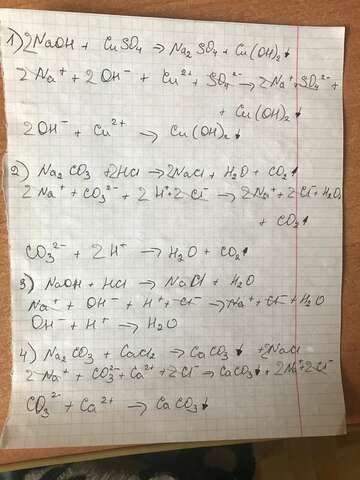 1) 2NaOH + CuSO₄ → Na₂SO₄ + Cu(OH)₂↓
2Na⁺ + 2OH⁻ + Cu²⁺ + SO₄²⁻ → 2Na⁺ + SO₄²⁻ +
+ Cu(OH)₂↓
2OH⁻ + Cu²⁺ → Cu(OH)₂↓
2) Na₂CO₃ + 2HCl → 2NaCl + H₂O + CO₂↑
2Na⁺ + CO₃²⁻ + 2H⁺ + 2Cl⁻ → 2Na⁺ + 2Cl⁻ + H₂O
+ CO₂↑
CO₃²⁻ + 2H⁺ → H₂O + CO₂↑
3) NaOH + HCl → NaCl + H₂O
Na⁺ + OH⁻ + H⁺ + Cl⁻ → Na⁺ + Cl⁻ + H₂O
OH⁻ + H⁺ → H₂O
4) Na₂CO₃ + CaCl₂ → CaCO₃↓ + 2NaCl
2Na⁺ + CO₃²⁻ + Ca²⁺ + 2Cl⁻ → CaCO₃↓ + 2Na⁺ + 2Cl⁻
CO₃²⁻ + Ca²⁺ → CaCO₃↓